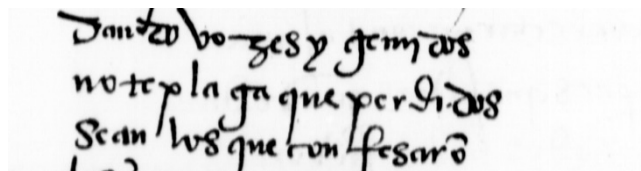 dando bozes y gemidos
no te plaga que perdidos
sean los que confesarõ